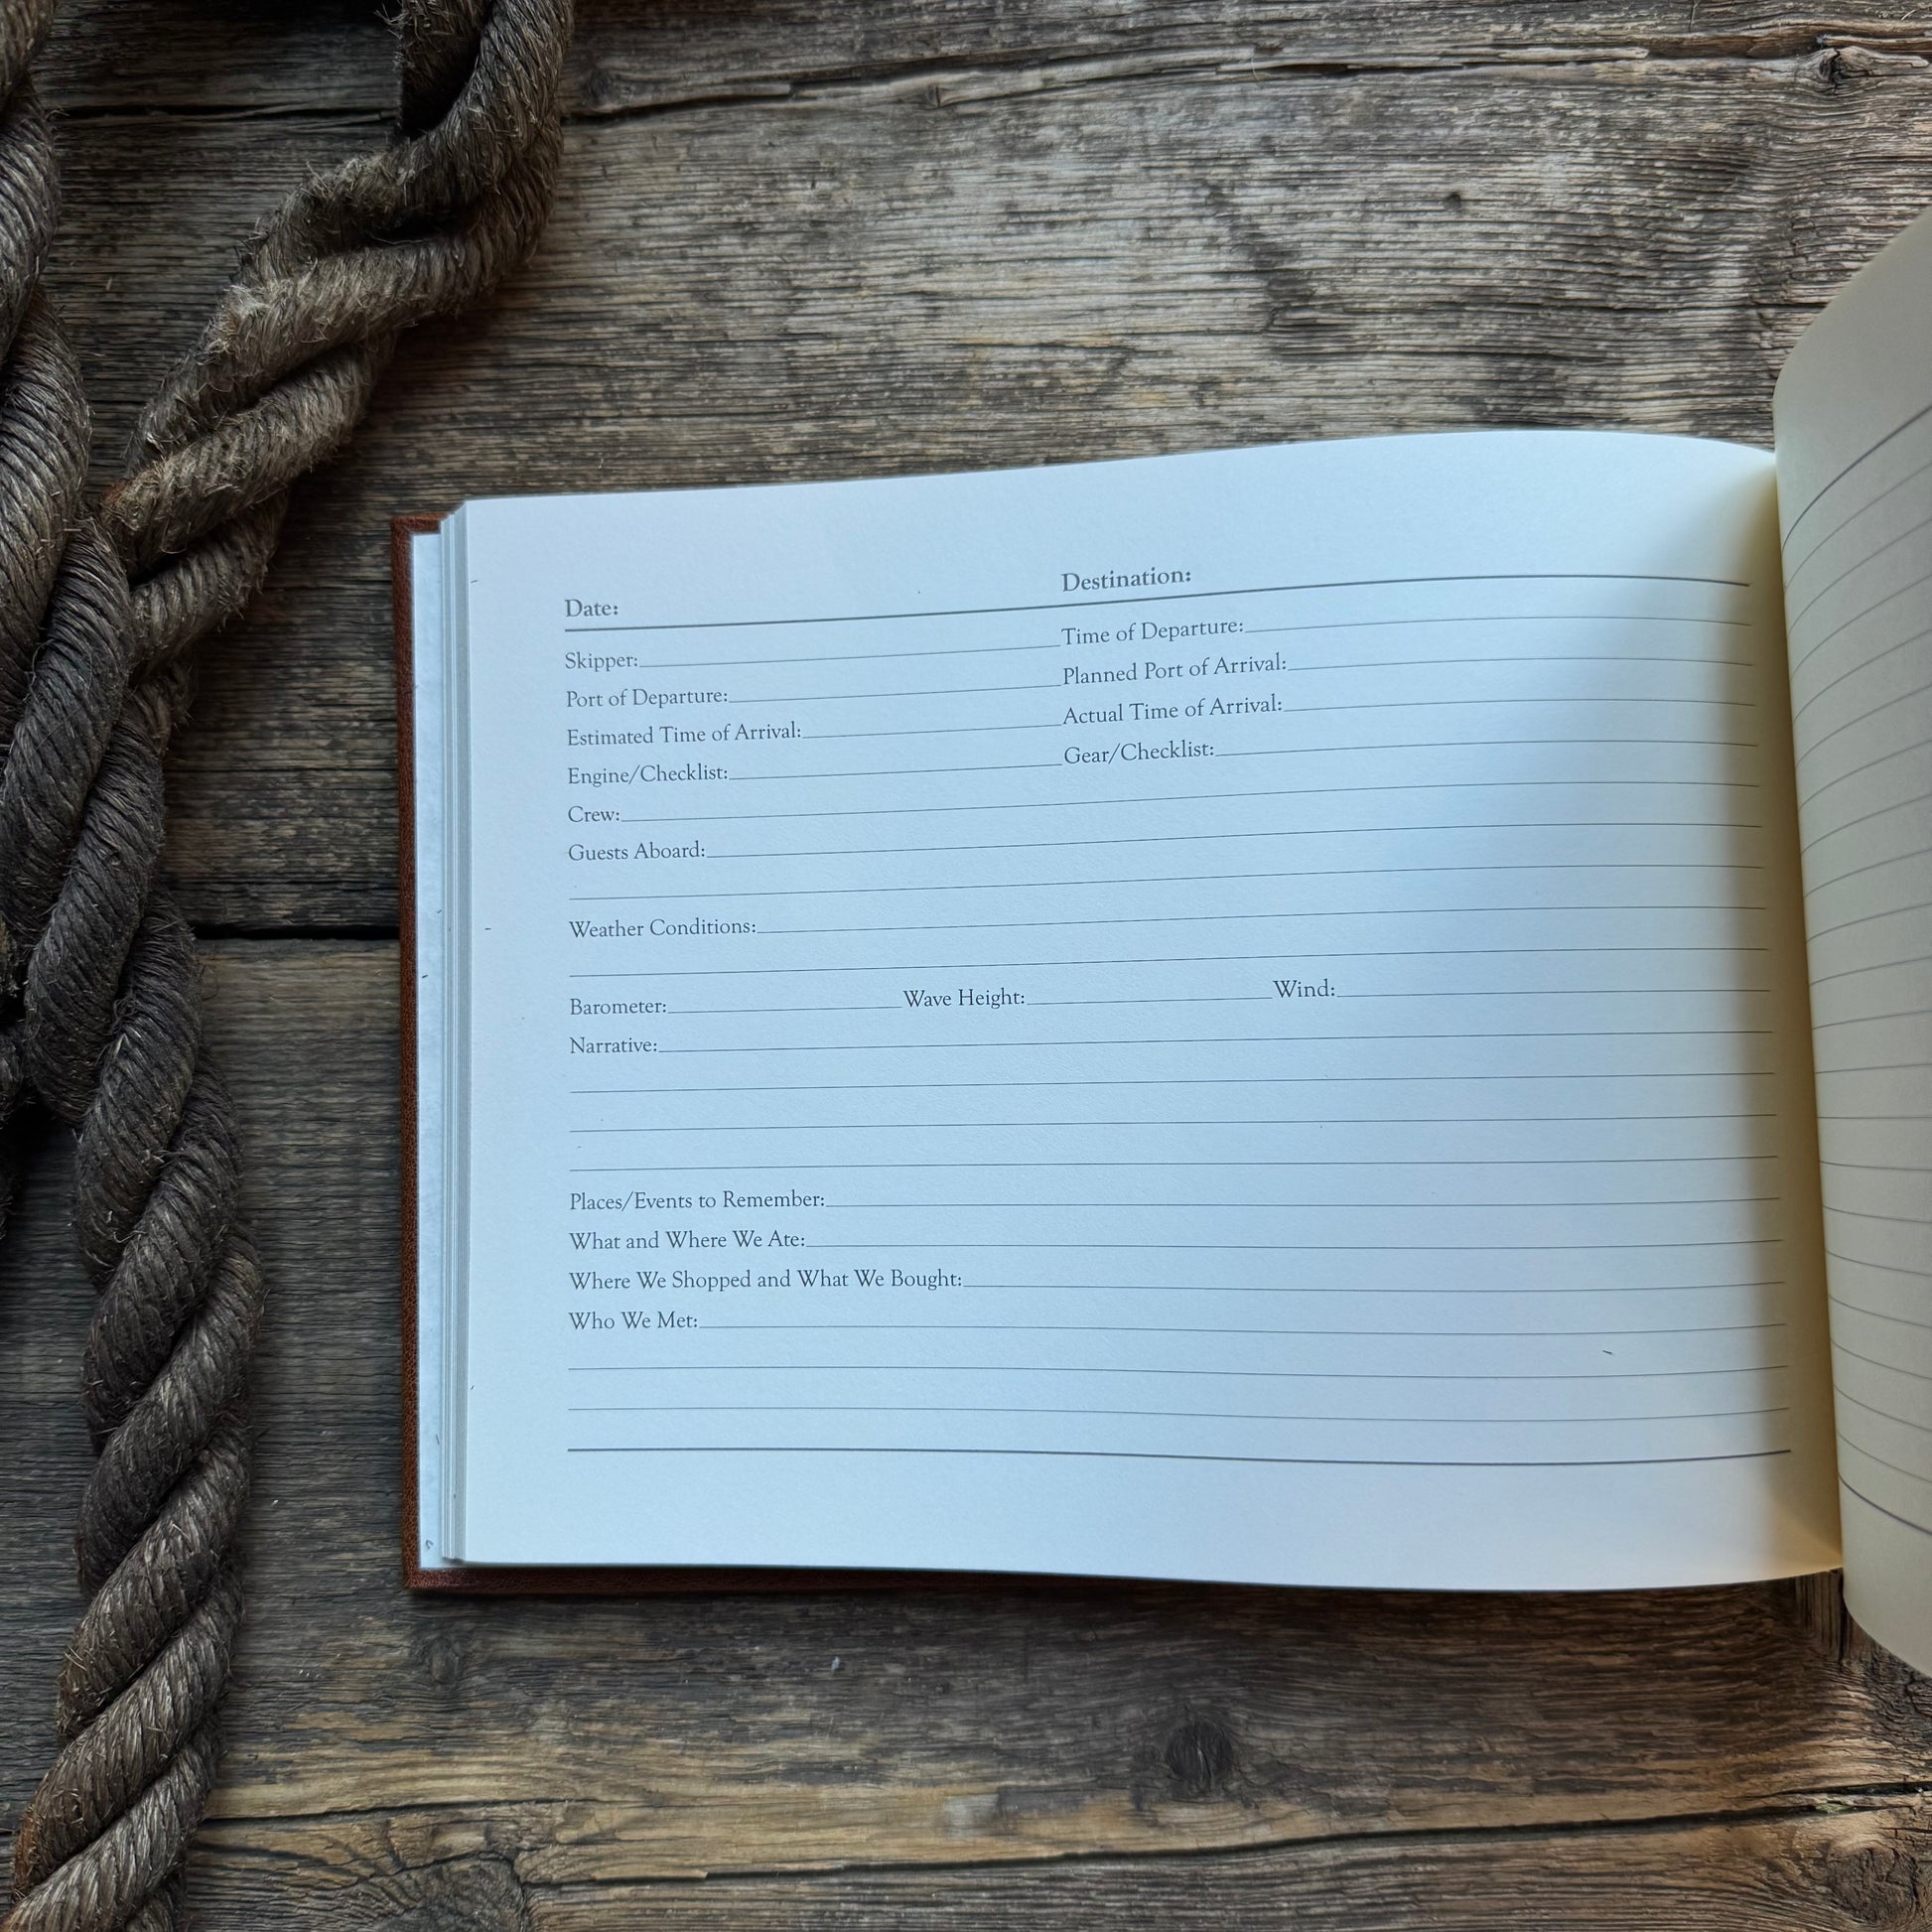 Date: Destination:
Skipper: Time of Departure:
Port of Departure: Planned Port of Arrival:
Estimated Time of Arrival: Actual Time of Arrival:
Engine/Checklist: Gear/Checklist:
Crew:
Guests Aboard:
Weather Conditions:
Barometer: Wave Height: Wind:
Narrative:
Places/Events to Remember:
What and Where We Ate:
Where We Shopped and What We Bought:
Who We Met: